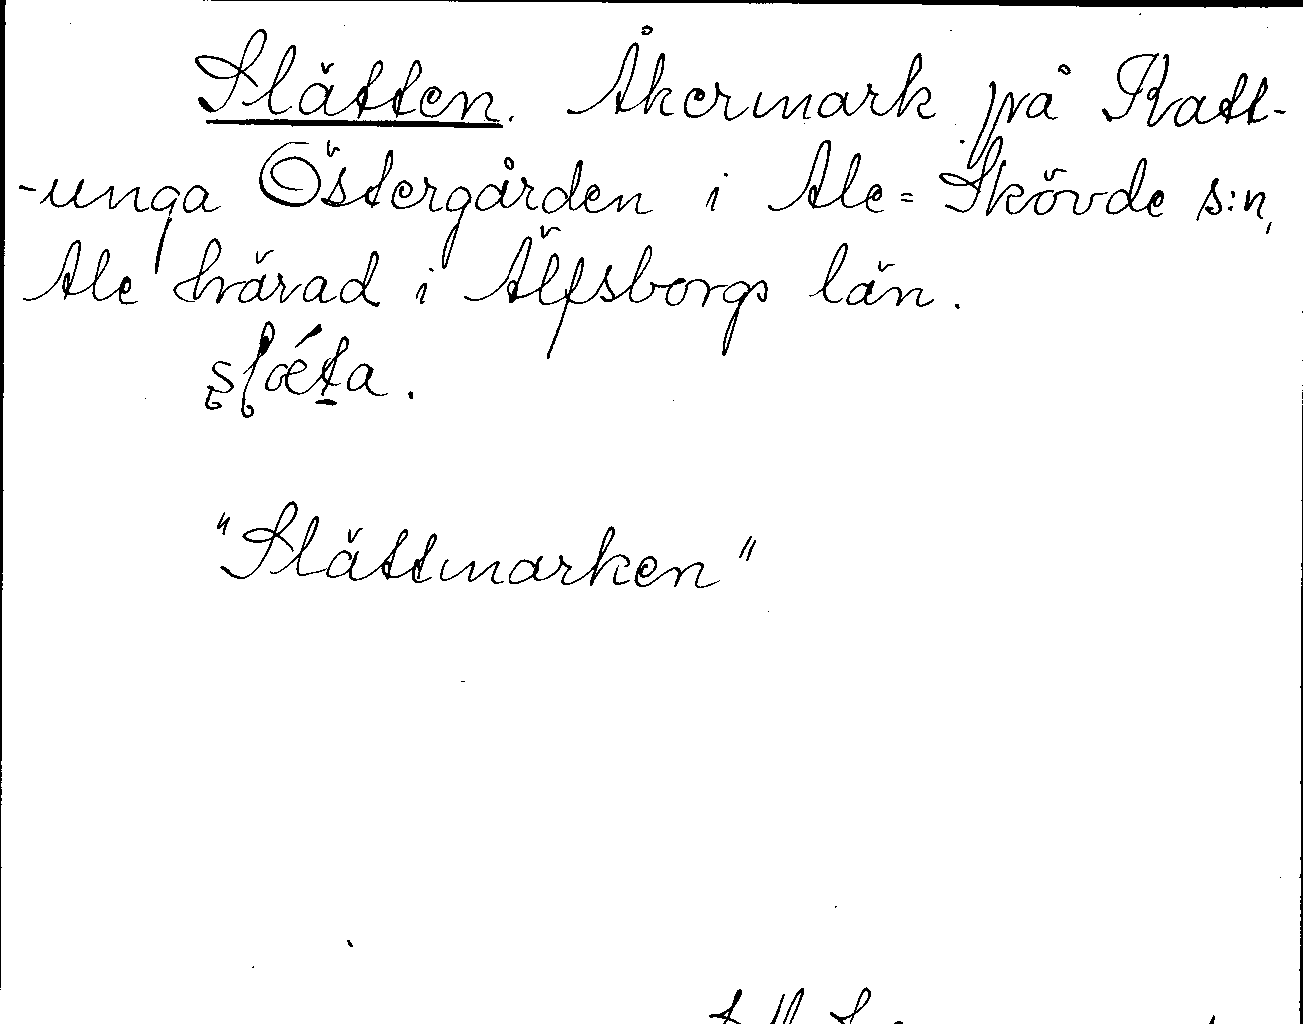 Slätten. Åkermark på Ratt-
-unga Östergården i Ale-Skövde s:n,
Ale härad i Älfsborgs län.
slǽta.
"Slättmarken"